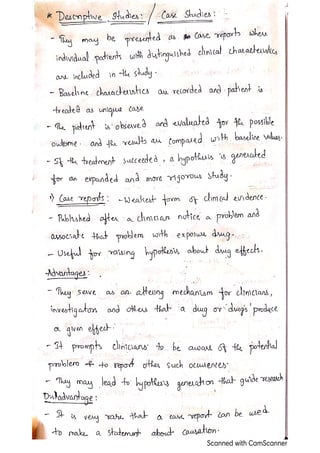 * Descriptive Studies: / Case Studies:
- They may be presented as case reports when
individual patients with distinguished clinical characteristics
are included in the study.
- Baseline characteristics are recorded and patient is
treated as unique case
- The patient is observed and evaluated for the possible
outcome. and the results are compared with baseline values.
- If the treatment succeeded, a hypothesis is generated
for an expanded and more rigorous study.
1) Case reports: - Weakest form of clinical evidence.
- Published after a clinician notice a problem and
associate that problem with exposure drug.
- Useful for raising hypothesis about drug effects.
Advantages:
- They serve as an alterting mechanism for clinicians,
investigators and others that a drug or drugs produce
a given effect.
- It prompts clinicians to be aware of the potential
problem & to report other such occurences.
- They may lead to hypothesis generation that guide research
Disadvantage:
- It is very rare that a case report can be used
to make a statement about causation.
Scanned with CamScanner